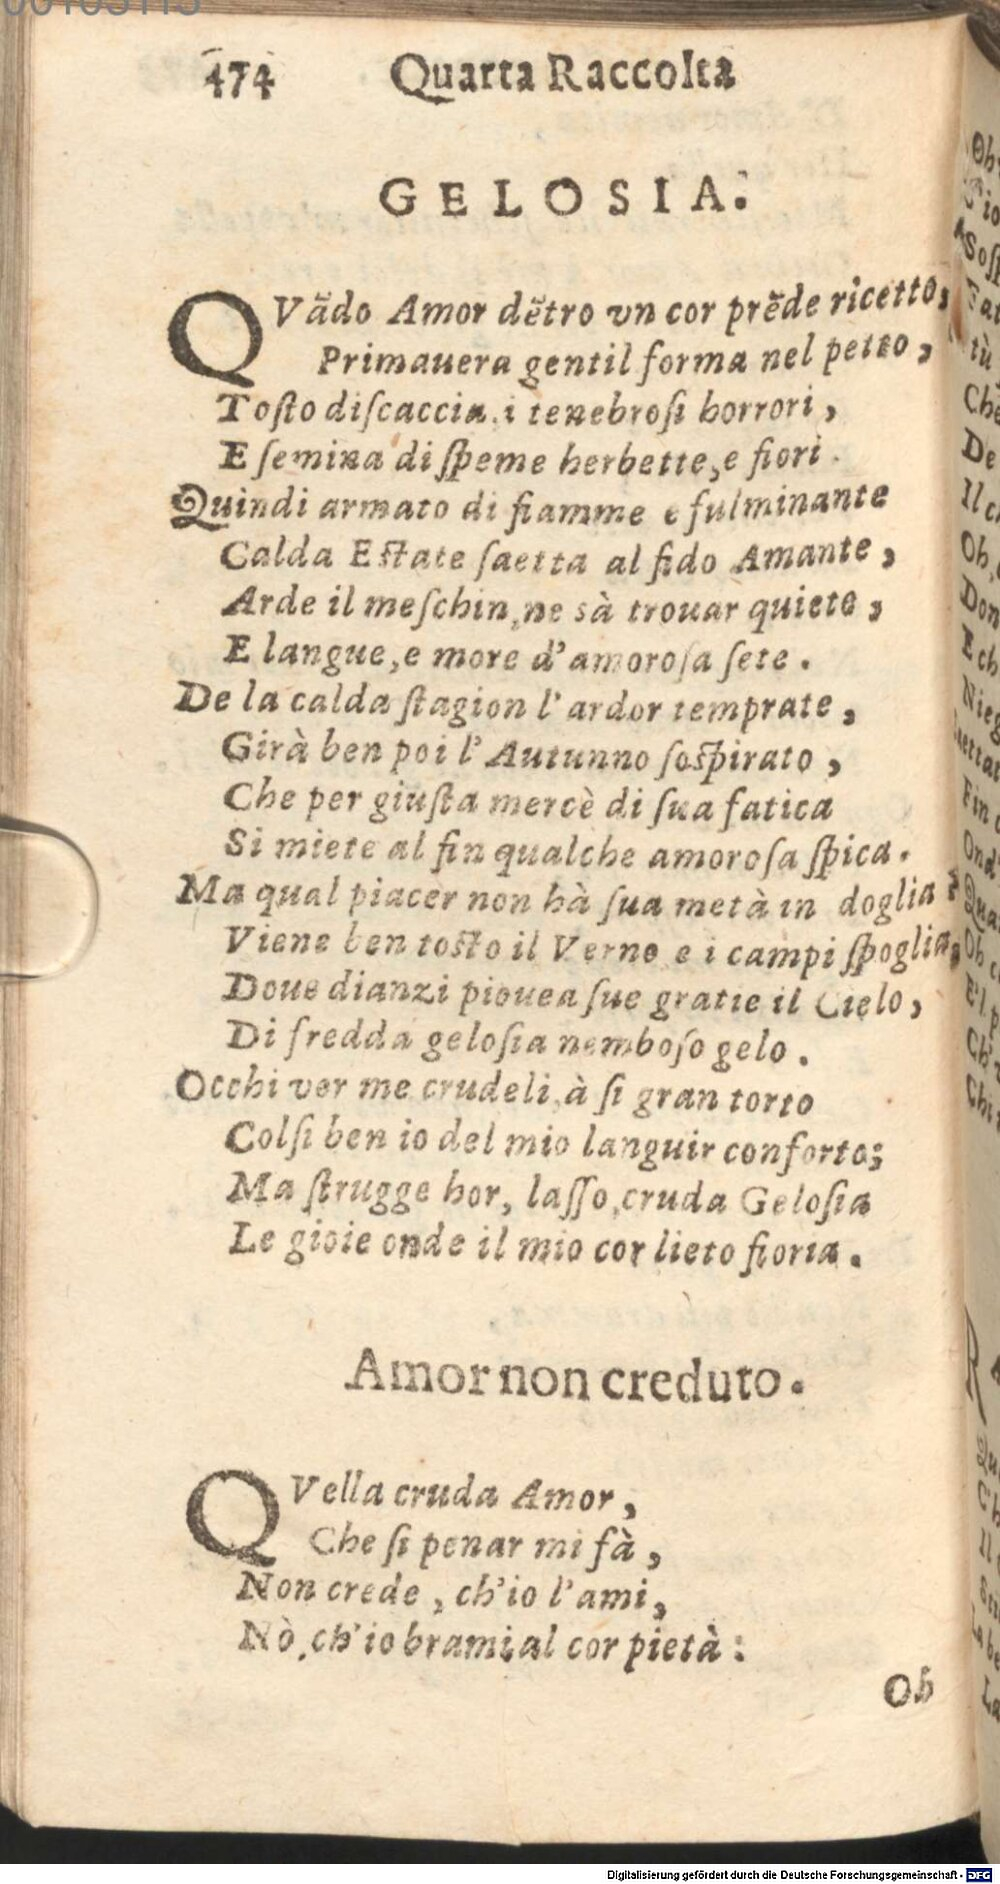 474 Quarta Raccolta
GELOSIA.
QVãdo Amor dẽtro vn cor prẽde ricetto,
Primauera gentil forma nel petto,
Toſto diſcaccia i tenebroſi horrori,
E ſemina di ſpeme herbette, e fiori.
Quindi armato di fiamme e fulminante
Calda Eſtate ſaetta al fido Amante,
Arde il meſchin, ne sà trouar quiete,
E langue, e more d'amoroſa ſete.
De la calda ſtagion l'ardor temprate,
Girà ben poi l'Autunno ſoſpirato,
Che per giuſta mercè di ſua fatica
Si miete al fin qualche amoroſa ſpica.
Ma qual piacer non hà ſua metà in doglia?
Viene ben toſto il Verno e i campi ſpoglia,
Doue dianzi piouea ſue gratie il Cielo,
Di fredda geloſia nemboſo gelo.
Occhi ver me crudeli, à ſi gran torto
Colſi ben io del mio languir conforto;
Ma ſtrugge hor, laſſo, cruda Geloſia
Le gioie onde il mio cor lieto fioria.
Amor non creduto.
QVella cruda Amor,
Che ſi penar mi fà,
Non crede, ch'io l'ami,
Nò, ch'io brami al cor pietà:
Oh
Digitalisierung gefördert durch die Deutsche Forschungsgemeinschaft - DFG